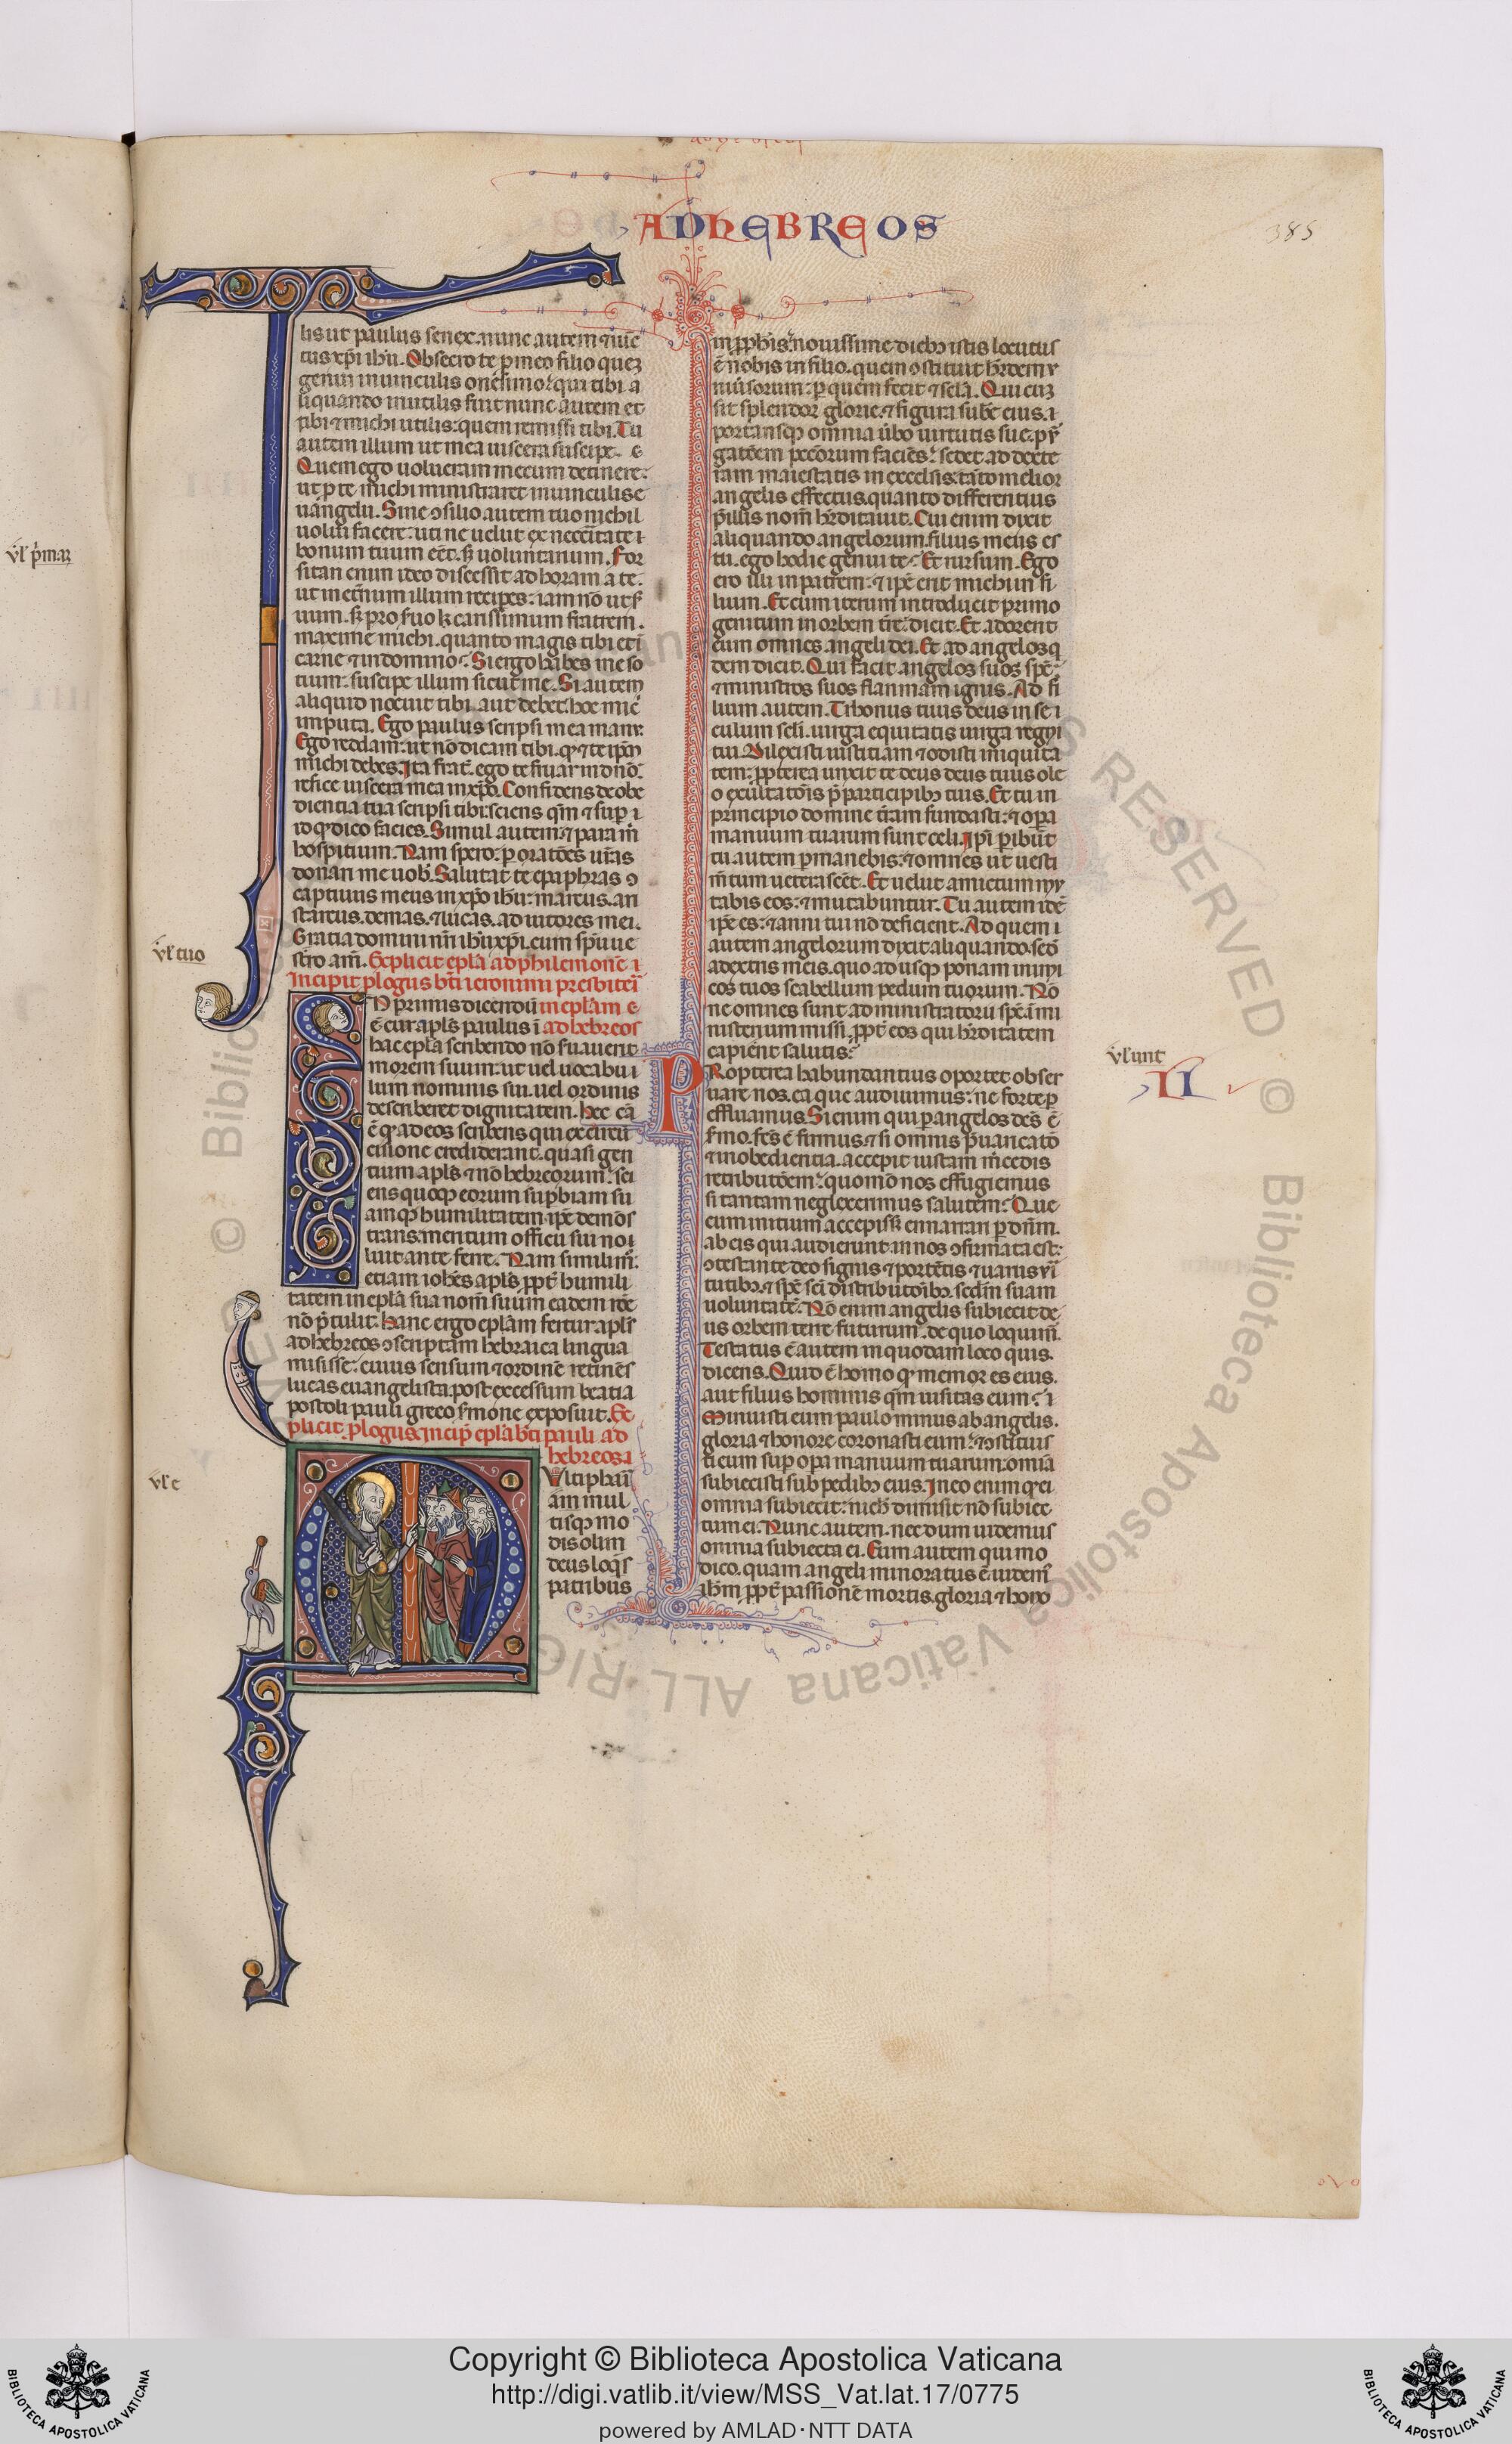 AD HEBREOS
385
lis ut paulus senex. nunc autem ⁊ uīc
tus xp̄i ih̄u. Obsecro te p̱ meo filio quez
genui in uinculis onesimo: qui tibi a
liquando inutilis fuit nunc autem et
tibi ⁊ michi utilis: quem remissi tibi. Tu
autem illum ut mea uiscera suscipe.
Quem ego uolueram mecum detinere:
ut p̱ te michi ministraret in uinculis e
uangelii. Sine ↄsilio autem tuo nichil
uolui facere: uti ne uelut ex necc̄itate
bonum tuum eēt. sꝫ uoluntarium. For
sitan enim ideo discessit ad horam a te.
ut in et̄num illum recipes: iam nō ut s̄
uum. sꝫ pro s̄uo kc̄arissimum fratrem.
maxime michi. quanto magis tibi et ī
carne ⁊ in domino. Si ergo habes me so
tium: suscipe illum sicut me. Si autem
aliquid nocuit tibi aut debet: hoc mic̄
imputa. Ego paulus scripsi mea manu:
Ego reddam: ut nō dicam tibi. qꝫ ⁊ te ip̄m
michi debes. Ita frat̄. ego te fruar in dn̄o.
refice uiscera mea in xp̄o. Confidens de obe
dientia tua scripsi tibi: sciens qm̄ ⁊ sup̱
id qꝫ dico facies. Simul autem ⁊ para m̄
hospitium. Nam spero: p̱ oratōes ur̄as
donari me uob̄. Salutat te epaphras ↄ
captiuus meus in xp̄o ih̄u: marcus. ari
starcus. demas. ⁊ lucas. ad iutores mei.
Gratia domini nr̄i ih̄u xp̄i. cum sp̄u ue
stro am̄. Explicit epl̄a ad philemonē
Incipit p̱logus bt̄i ieronimi presbiteri
IN primis dicendū in epl̄am
ē cur apl̄s paulus ī ad hebreos
hac epl̄a scribendo nō s̄uauerit
morem suum: ut uel uocabu
lum nominis sui. uel ordinis
describeret dignitatem. Hec cā
ē qꝫ ad eos scribens qui ex circū
cisione crediderant. quasi gen
tium apl̄s ⁊ nō hebreorum: sci
ens quoqꝫ eorum sup̱biam su
amqꝫ humilitatem ip̄e demōs
trans. meritum officii sui no
luit ante ferre. Nam simili m̄:
etiam ioh̄es apl̄s. ꝓpt̄ humili
tatem in epl̄a sua nom̄ suum eadem rōe
nō p̄tulit. Hanc ergo epl̄am fertur apl̄s
ad hebreos ↄscriptam hebraica lingua
misisse: cuius sensum ⁊ ordinē retinēs
lucas euangelista. post excessum beati a
postoli pauli greco s̄mone exposuit. Ex
plicit p̱logus. incip̄ epl̄a bt̄i pauli ad
hebreos
Ultiphari
am mul
tisqꝫ mo
dis olim
deus loq̄s
patribus
in ꝓph̄is: nouissime diebꝫ istis locutus
ē nobis in filio. quem ↄstituit h̄rdem
uniu̇sorum: p̱ quem fecit ⁊ sc̄la. Qui cuꝫ
sit splendor glorie. ⁊ figura sub̄e eius.
portansqꝫ omnia u̇bo uirtutis sue. pur
gatōem pcc̄orum faciēs: sedet ad dexte
ram maiestatis in excelsis. tāto melior
angelis effectus. quanto differentius
p̄ illis nom̄ h̄rditauit. Cui enim dixit
aliquando angelorum. filius meus es
tu. ego hodie genui te. Et rursum. Ego
ero illi in patrem: ⁊ ip̄e erit michi in fi
lium. Et cum iterum introducit primo
genitum in orbem tr̄e: dicit. Et adorent
eum omnes angeli dei. Et ad angelos q
dem dicit. Qui facit angelos suos sp̄c̄
⁊ ministros suos flammam ignis. Ad fi
lium autem. Tronus tuus deus in se
culum sc̄li. uirga equitatis uirga regni
tui. Dilexisti iustitiam ⁊ odisti iniquita
tem: ꝓpterea unxit te deus deus tuus ole
o exultatōis p̄ participibꝫ tuis. Et tu in
principio domine tr̄am fundasti: ⁊ opa
manuum tuarum sunt celi. Ipi p̱ibūt
tu autem p̱manebis: ⁊ omnes ut uesti
m̄tum ueterascēt. Et uelut amictum mu
tabis eos: ⁊ mutabuntur. Tu autem idē
ip̄e es: ⁊ anni tui nō deficient. Ad quem
autem angelorum dixit aliquando. sed̄
a dextris meis. quo ad usqꝫ ponam inimi
cos tuos scabellum pedum tuorum. Nō
ne omnes sunt administratorii sp̄c̄ ī mi
nisterium missi. ꝓpt̄ eos qui h̄rditatem
capient salutis.
PRopterea habundantius oportet obser
uare nos. ea que audiuimus: ne forte p̱
effluamus. Si enim qui p̱ angelos dc̄s ē
s̄mo. fc̄s ē firmus. ⁊ si omnis p̄uaricatō
⁊ inobedientia. accepit iustam m̄cedis
retributōem: quomō nos effugiemus
si tantam neglexerimus salutem: Que
cum initium accepisꝫ enarrari p̱ dn̄m.
ab eis qui audierunt in nos ↄfirmata est:
ↄtestante deo signis ⁊ portētis ⁊ uariis uir
tutibꝫ. ⁊ sp̄c̄ sc̄i distributōibꝫ. sc̄dm suam
uoluntatē. Nō enim angelis subiecit de
us orbem terre futurum. de quo loquim̄.
Testatus ē autem in quodam loco quis.
dicens. Quid ē homo qꝫ memor es eius.
aut filius hominis qm̄ uisitas eum.
Minuisti eum paulo minus ab angelis.
gloria ⁊ honore coronasti eum: ⁊ ↄstituis
ti eum sup̱ opa manuum tuarum: omīa
subiecisti sub pedibꝫ eius. In eo enim qꝫ ei
omnia subiecit: nich̄ dimisit nō subiec
tum ei. Nunc autem. nec dum uidemus
omnia subiecta ei. Eum autem qui mo
dico. quam angeli minoratus ē uidem̄
ih̄m. ꝓpt̄ passionē mortis. gloria ⁊ hono
ul' tuo
ul' e
ul' unt
II
© Biblioteca Apostolica Vaticana ALL RIGHTS RESERVED
Copyright © Biblioteca Apostolica Vaticana
http://digi.vatlib.it/view/MSS_Vat.lat.17/0775
powered by AMLAD·NTT DATA
BIBLIOTECA APOSTOLICA VATICANA
BIBLIOTECA APOSTOLICA VATICANA